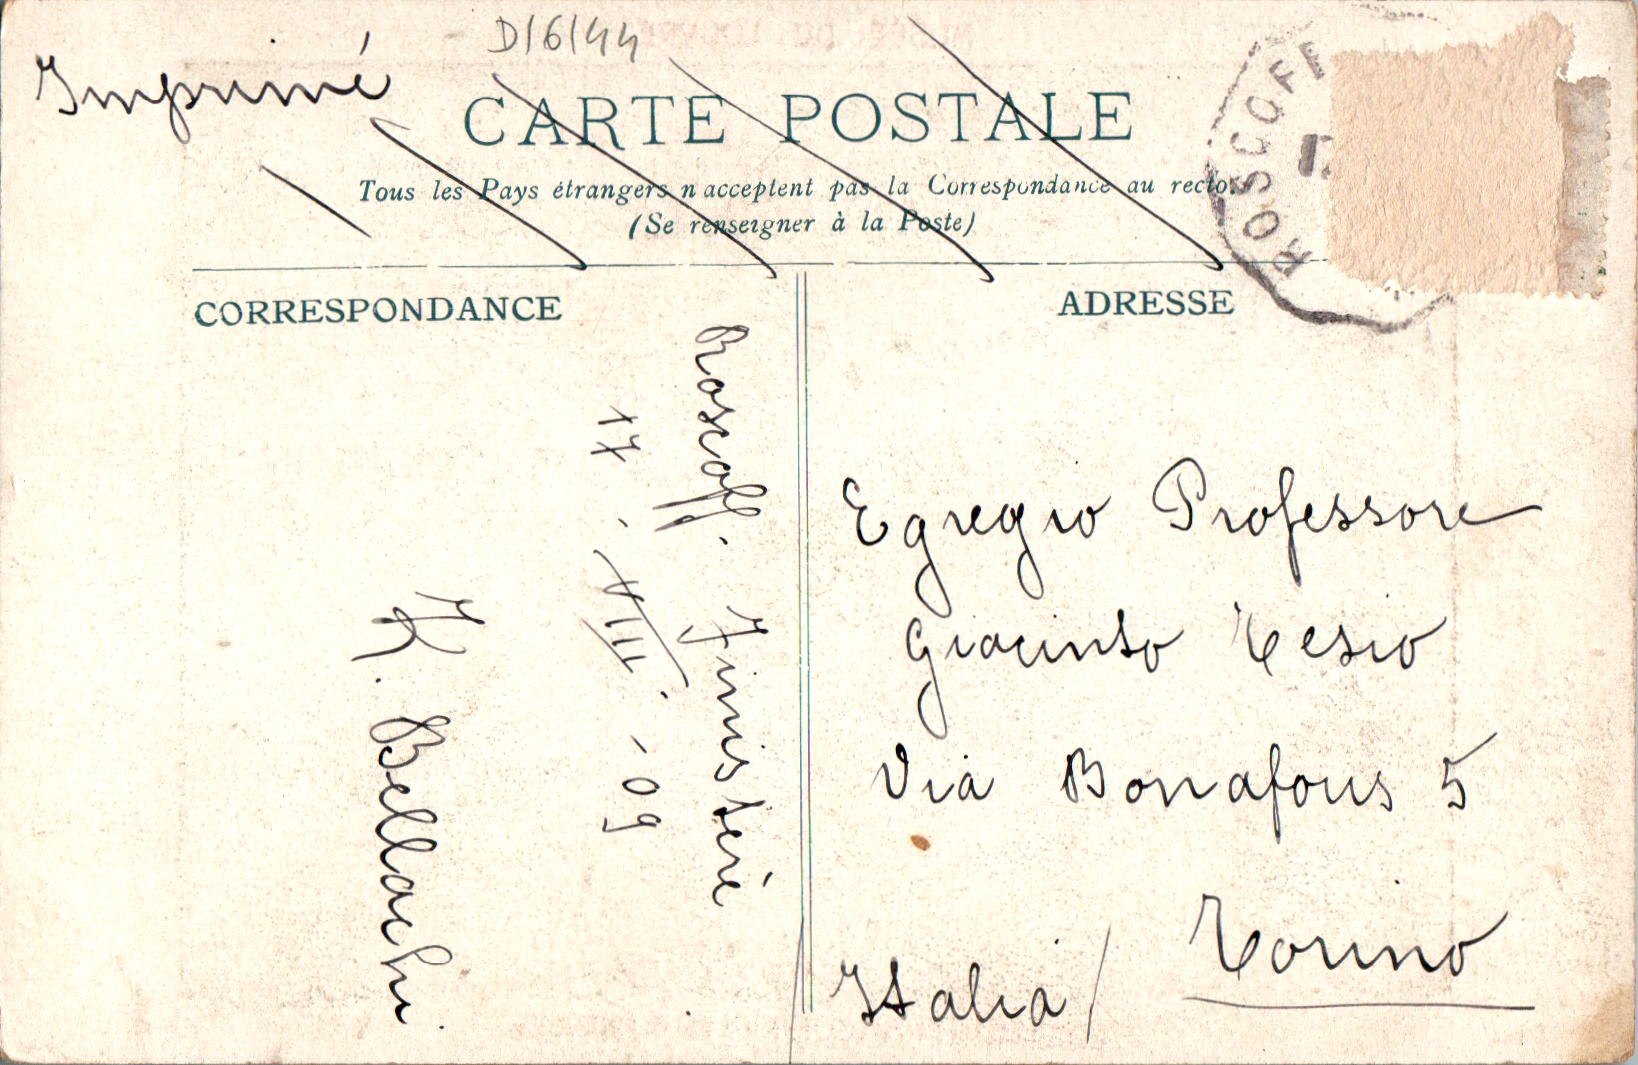 D/6/44
Imprimé
CARTE POSTALE
Tous les Pays étrangers n'acceptent pas la Correspondance au recto.
(Se renseigner à la Poste)
ROSCOFF
CORRESPONDANCE
ADRESSE
Roscoff. Finisterè
17 - VIII. - 09
Bellachi.
Egregio Professore
Giacinto Tesio
Via Bonafous 5
Torino
Italia/